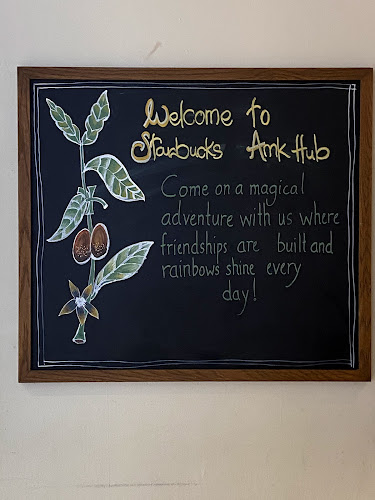 Welcome to
Starbucks Amk Hub
Come on a magical
adventure with us where
friendships are built and
rainbows shine every
day!